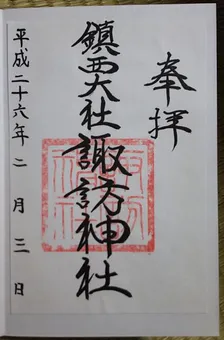 奉拝
鎮西大社諏方神社
平成二十六年二月三日